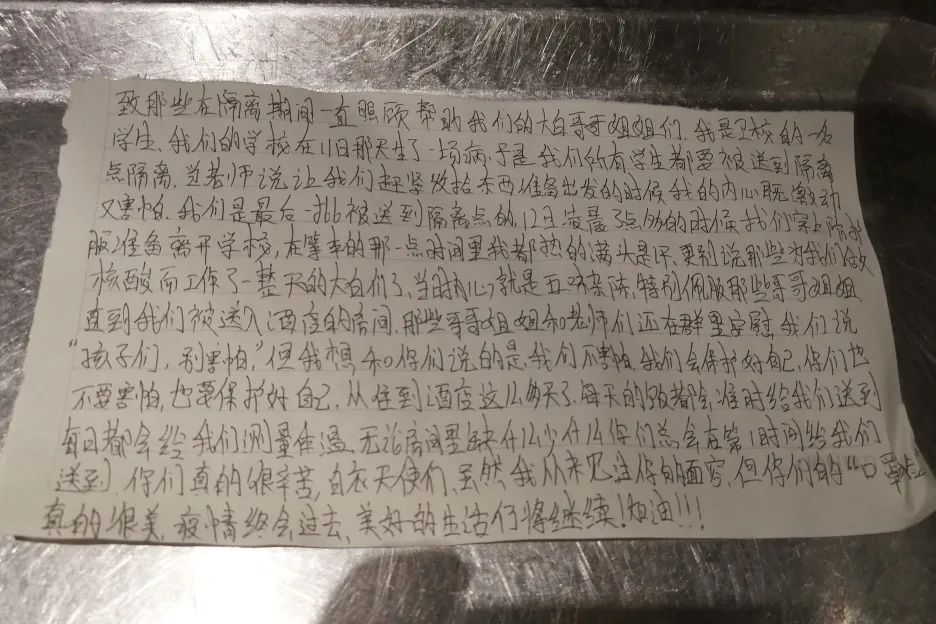 致那些在隔离期间一直照顾帮助我们的大白哥哥姐姐们,我是卫校的一名
学生,我们的学校在11日那天生了一场病,于是我们所有学生都要被送到隔离
点隔离,当老师说让我们赶紧收拾东西准备出发的时候我的内心既激动
又害怕,我们是最后一批被送到隔离点的,12日凌晨3点多的时候我们穿上防护
服准备离开学校,在等车的那一点时间里我都热的满头是汗,更别说那些为我们做
核酸而工作了一整天的大白们了,当时内心就是五味杂陈,特别佩服那些哥哥姐姐,
直到我们被送入酒店的房间,那些哥哥姐姐和老师们还在群里安慰我们说
“孩子们,别害怕,”但我想和你们说的是,我们不害怕,我们会保护好自己,你们也
不要害怕,也要保护好自己,从住到酒店这么多天了,每天的饭都会准时给我们送到
每日都会给我们测量体温,无论房间里缺什么少什么你们总会在第1时间给我们
送到,你们真的很辛苦,白衣天使们,虽然我从未见过你的面容,但你们的“口罩脸”
真的很美,疫情终会过去,美好的生活仍将继续!加油!!!